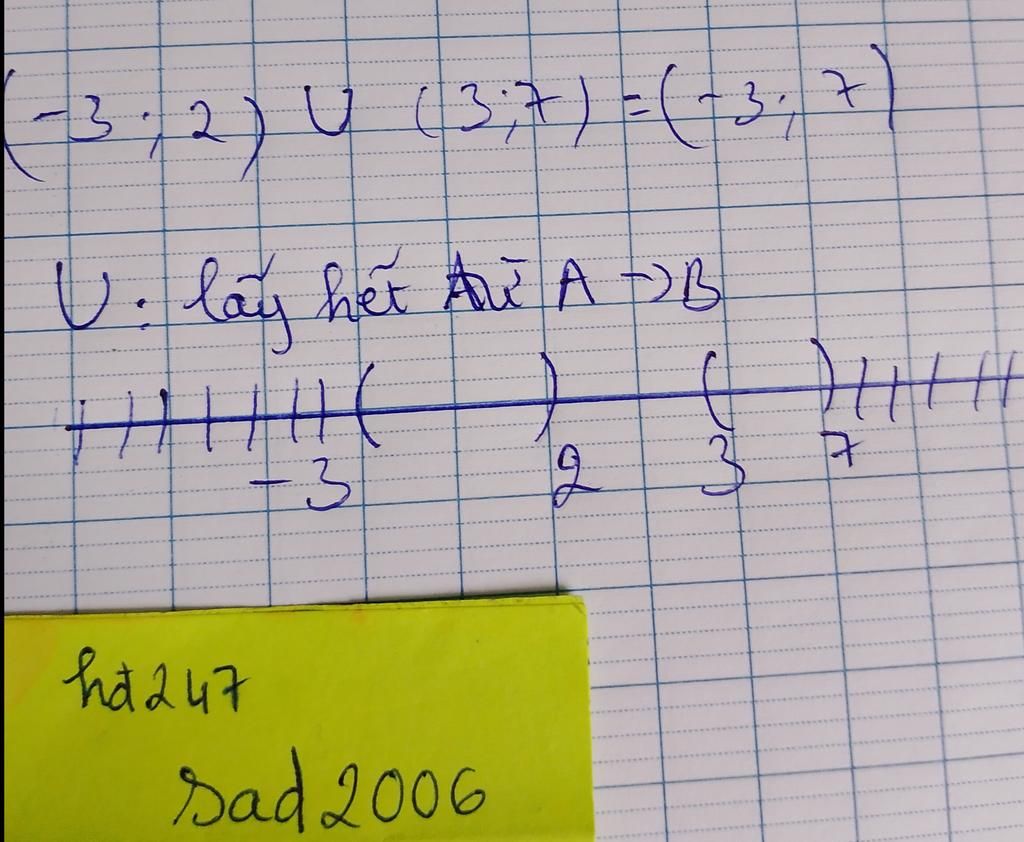 (-3; 2) U (3;7) = (-3; 7)
U: lấy hết từ A → B
-3 2 3 7
hđ247
sad2006